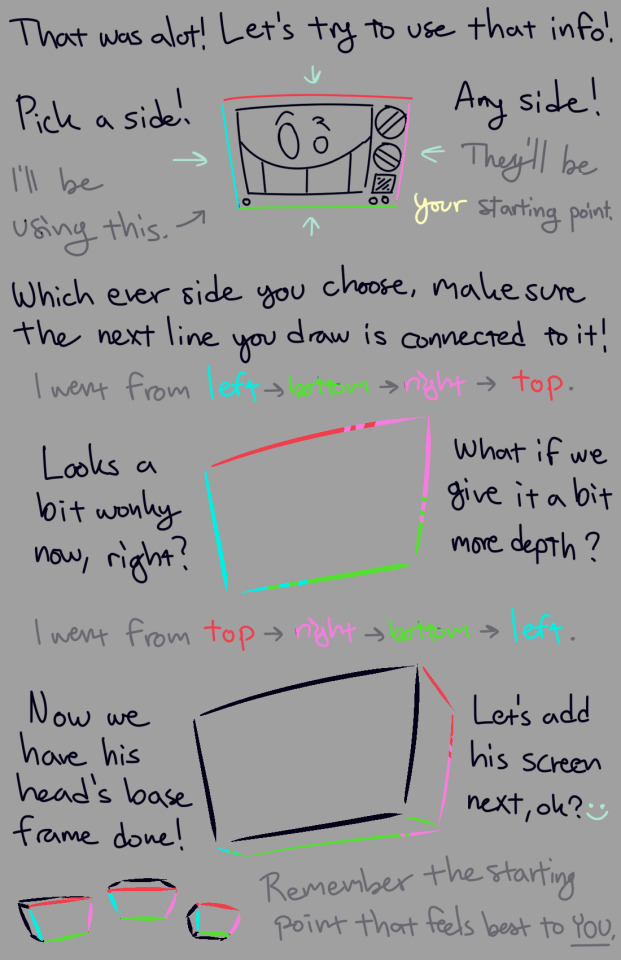 That was alot! Let's try to use that info!
Pick a side!
Any side!
I'll be
using this.
They'll be
your starting point.
Which ever side you choose, make sure
the next line you draw is connected to it!
I went from left → bottom → right → top.
Looks a
bit wonky
now, right?
What if we
give it a bit
more depth?
I went from top → right → bottom → left.
Now we
have his
head's base
frame done!
Let's add
his screen
next, ok? :)
Remember the starting
point that feels best to YOU.